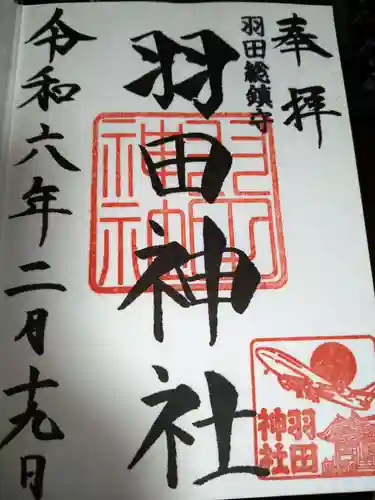 奉拝
羽田総鎮守
羽田神社
令和六年二月十九日
羽田神社
羽田
神社